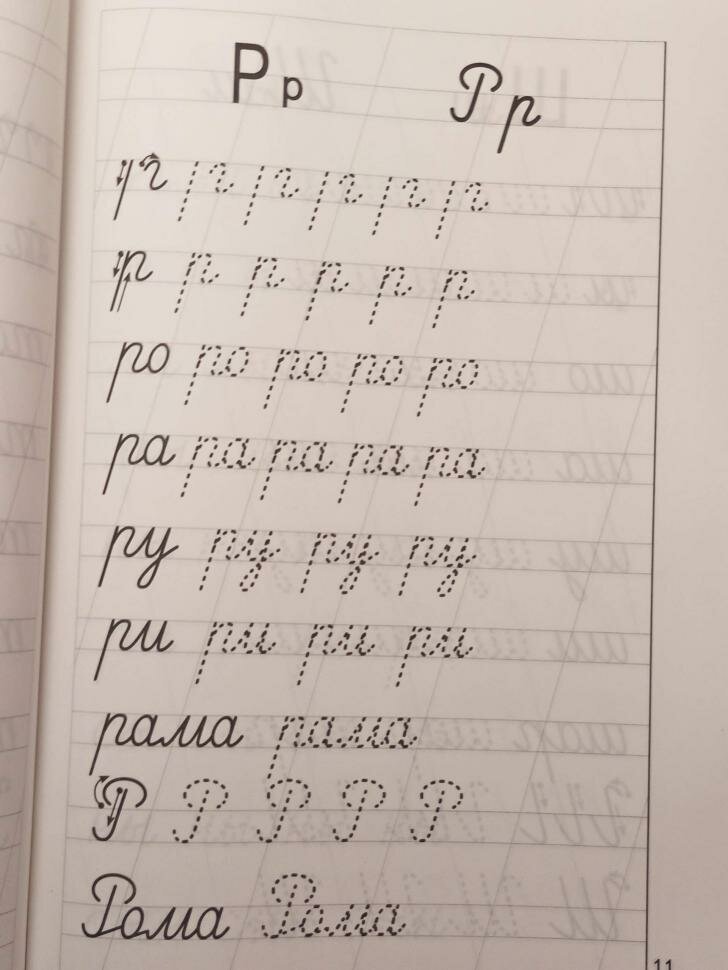 Рр Рр
р р р р р р
р р р р р р
ро ро ро ро ро
ра ра ра ра ра
ру ру ру ру
ри ри ри ри
рама рама
Р Р Р Р Р
Рома Рома
11